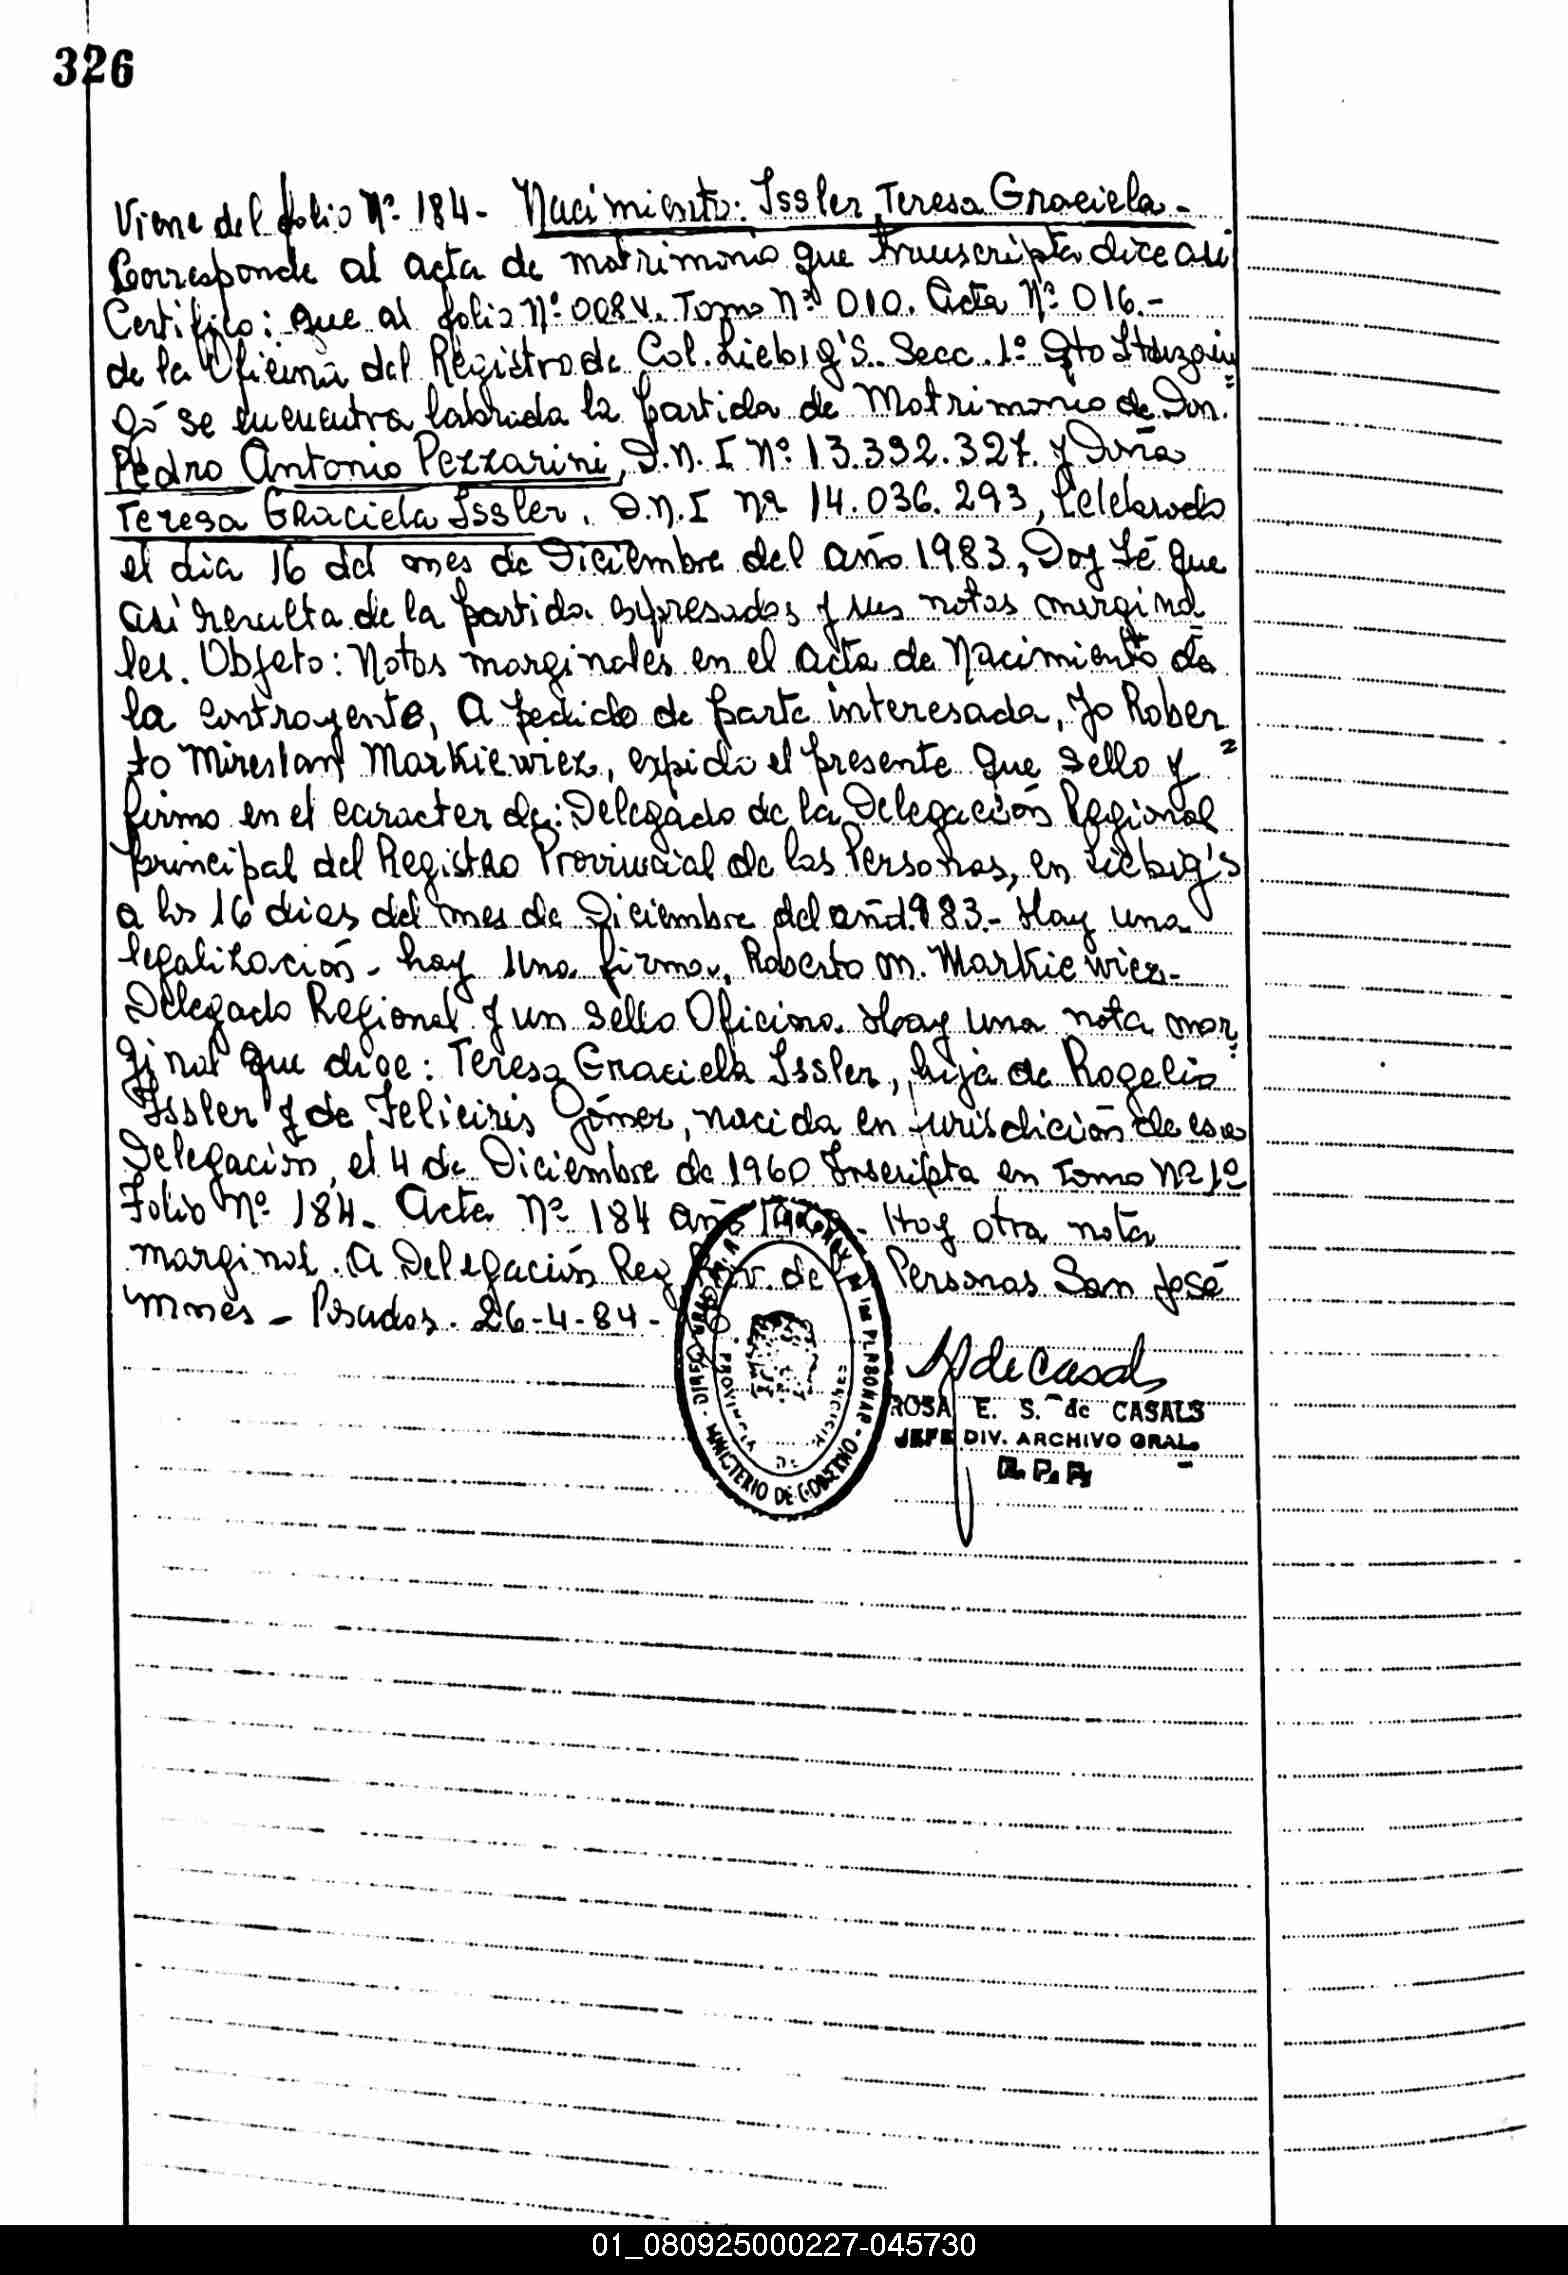 326
Viene del folio Nº 184- Nacimiento: Issler Teresa Graciela-
Corresponde al acta de matrimonio que transcripta dice asi
Certifico: que al folio Nº 008V. Tomo Nº 010. Acta Nº 016.-
de la Oficina del Registro de Col. Liebig'S. Secc. 1º Dto Ituzain
gó se encuentra labrada la partida de Matrimonio de Don.
Pedro Antonio Pezzarini, D.N.I Nº 13.392.327. y Doña
Teresa Graciela Issler. D.N.I Nº 14.036.293, Celebrado
el dia 16 del mes de Diciembre del año 1983, Doy Fé que
asi resulta de la partida expresada y sus notas margina
les. Objeto: Notas marginales en el acta de Nacimiento de
la contrayente, A pedido de parte interesada, Yo Rober
to Mireslan Markiewiez, expido el presente que sello y
firmo en el caracter de: Delegado de la Delegación Regional
principal del Registro Provincial de las Personas, en Liebig's
a los 16 dias del mes de Diciembre del año 1983.- Hay una
legalización- hay una firma. Roberto M. Markiewiez-
Delegado Regional y un sello Oficina. Hay una nota mar
ginal que dice: Teresa Graciela Issler, hija de Rogelio
Issler y de Feliciris Gómez, nacida en jurisdición de esa
Delegación, el 4 de Diciembre de 1960 Inscripta en Tomo Nº 1º
Folio Nº 184. Acta Nº 184 año 1960- Hay otra nota
marginal. A Delegación Reg. Prov. de Personas San José
mnes- Posadas. 26-4-84-
MINISTERIO DE GOBIERNO - PROVINCIA DE
ROSA E. S. de CASALS
JEFE DIV. ARCHIVO GRAL.
R.P.P.
01_080925000227-045730